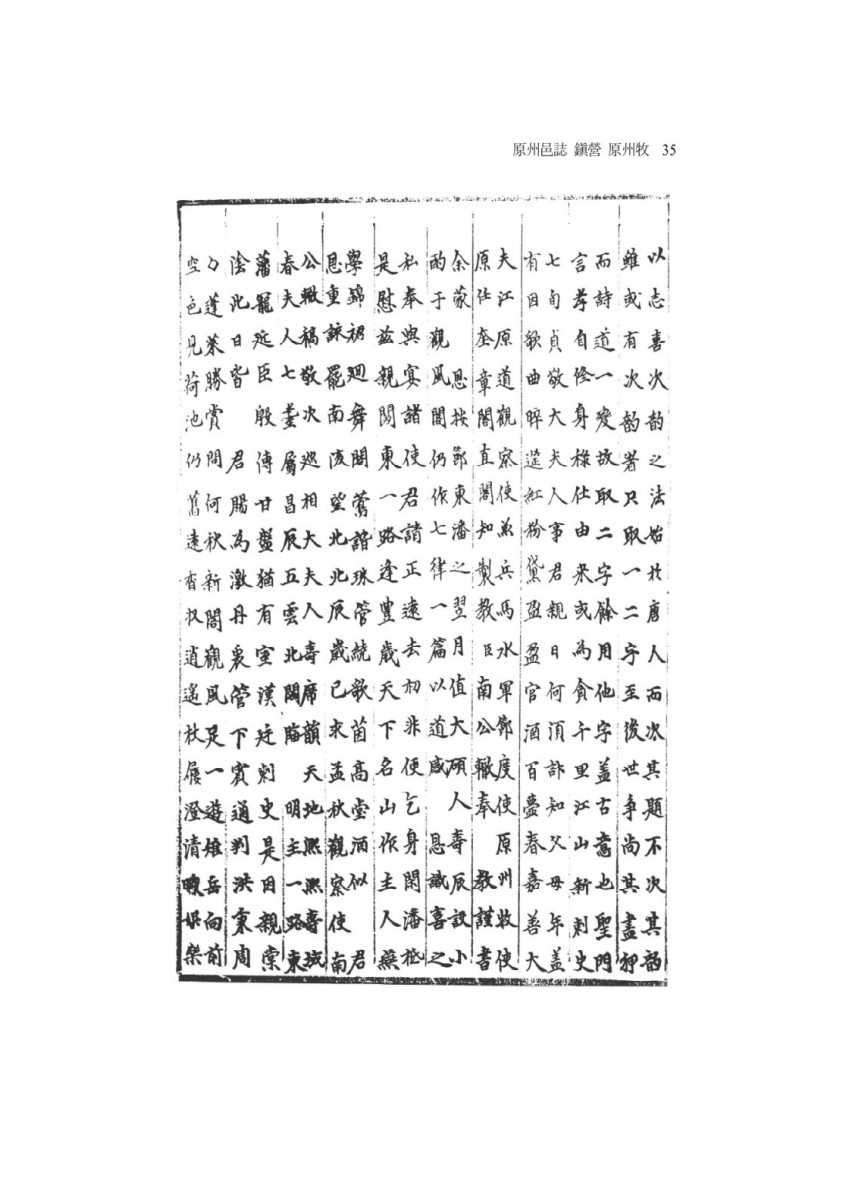 原州邑誌 鎭營 原州牧 35
以志喜次韵之法始於唐人而次其題不次其韵
雖或有次韵者只取一二字至後世爭尚其盡和
而詩道一變故取二字餘用他字盖古意也聖門
言孝自修身祿仕由来或為貪千里江山新刺史
七旬貞敬大夫人事君親日何須訃知父母年盖
有因歡曲晬筵紅粉黛盈盈官酒百臺春嘉善大
夫江原道觀察使兼兵馬水軍節度使 原州牧使
原任奎章閣直閣知製教臣南公轍奉 教謹書
余蒙 恩按節東藩之翌月值大碩人壽辰設小
酌于觀風閣仍作七律一篇以道感 恩識喜之
私奉與宴諸使君請正遠去初非便乞身閑藩
是慰茲親関東一路逢豊歳天下名山作主人無
學錦裙廻舞閣鶯諧珠管繞歌茵高堂酒似 君
恩重諫罷南陔望北北辰歳已求孟秋觀察使 南
公轍稿敬次巡相大夫人壽席韻 天地熙熙壽域
春夫人七耋屬昌辰五雲北闕臨 明主一路東
藩寵廷臣殷傳甘盤猶有室漢廷刺史是因親棠
陰化日皆 君賜為激丹衷管下賓通判洪秉周
々蓬莱勝賞問何秋新閣觀風足一遊雉岳向前
空色見荷池仍舊遠香収逍遥杖屨澄清暇娯樂